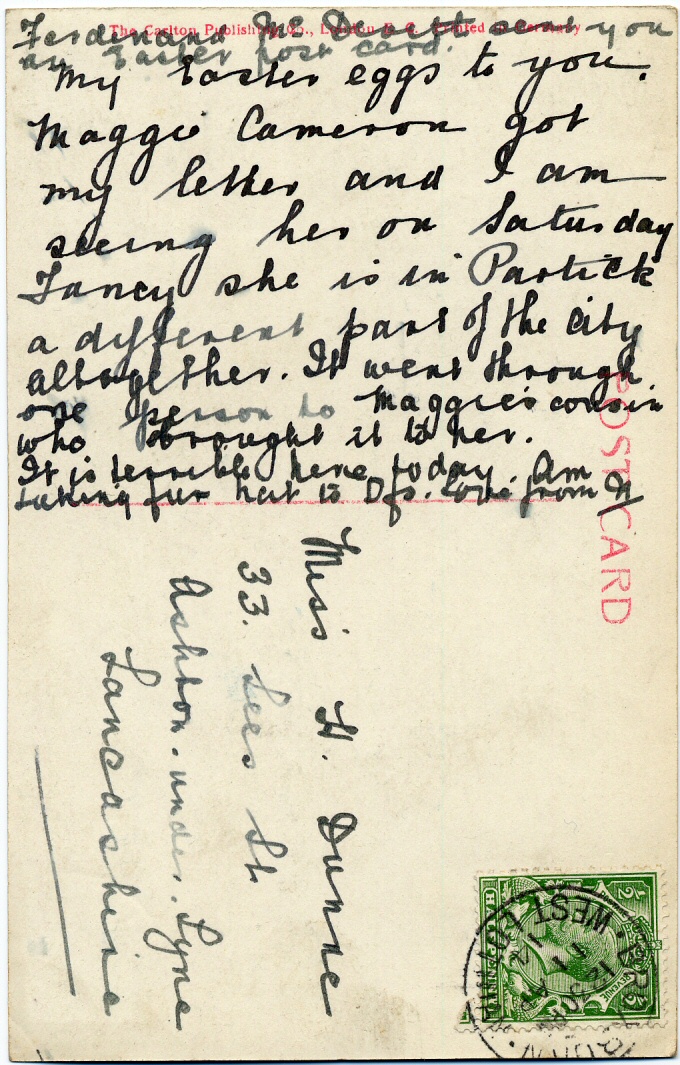 The Carlton Publishing Co., London E. C. Printed in Germany
Ferdinand Mc Devitt sent you
an Easter post card.
My Easter eggs to you.
Maggie Cameron got
my letter and I am
seeing her on Saturday
Fancy she is in Partick
a different part of the city
altogether. It went through
one person to Maggie's cousin
who brought it to her.
It is terrible here today. Am
taking fur hat to Dfs. Love from N
POST CARD
Miss H. Dunne
33. Lees St.
Ashton-under-Lyne
Lancashire
WEST
12.30 PM
11 AP
12